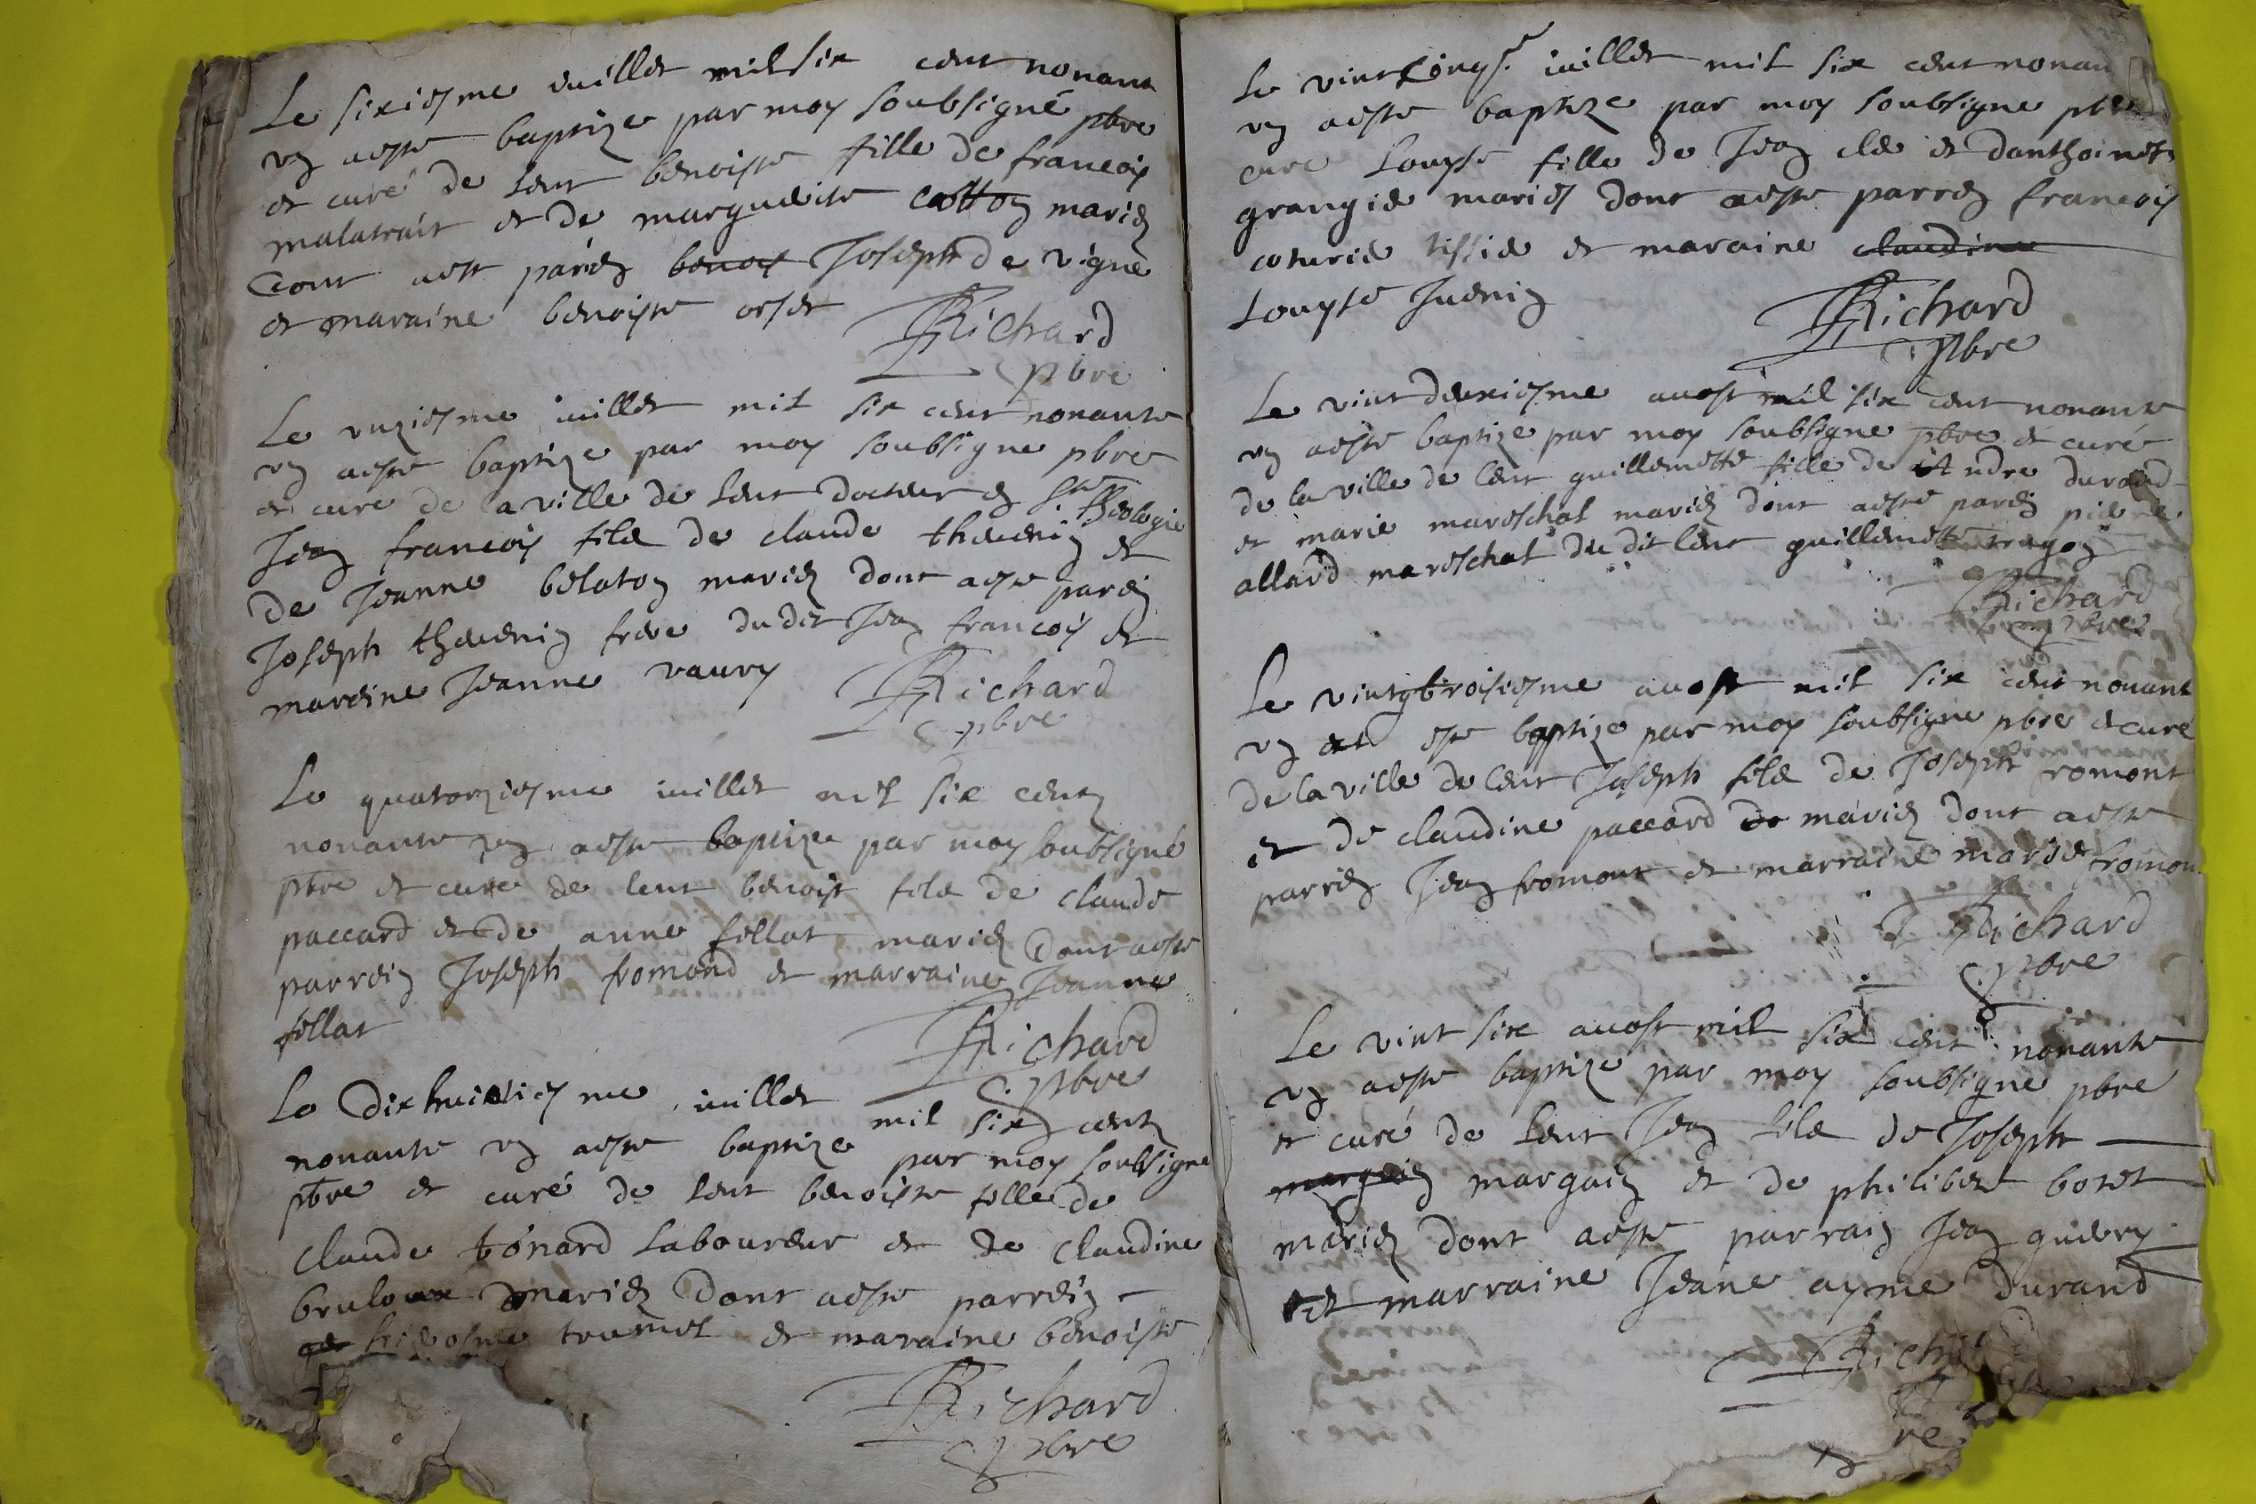 Le sixiesme iuillet mil six cent nonant
un aeste baptize par moy soubsigné pbre
et curé de Lent benoiste fille de francois
malatrait et de marguerite cotton mariez
dont aest parein benoy Joseph de vigne
et maraine benoiste orset
Richard
pbre
Le unziesme iuillet mil six cent nonante
un aeste baptize par moy soubsigne pbre
et cure de la ville de Lent docteur en ste Theologie
Jean francois filz de claude thevenin et
de Jeanne belaton mariez dont aeste parein
Joseph thevenin frere dudit Jean francois et
mareine Jeanne vaury
Richard
pbre
Le quatorziesme iuillet mil six centz
nonante un aeste baptize par moy soubsigné
pbre et cure de lent benoist filz de claude
paccard et de anne fillat mariez dont aeste
parrein Joseph fromond et marraine Jeanne
fillat
Richard
pbre
Le dixhuictiesme iuillet mil six centz
nonante un aeste baptize par moy soubsigne
pbre et curé de Lent benoiste fille de
claude tonard Laboureur et de claudine
bruloux mariez dont aeste parrein
hierosme trumel et maraine benoiste
Richard
pbre
Le vint cinqs.me iuillet mil six cent nonan
un aeste baptize par moy soubsigne pbre
cure Louyse fille de Jean cle et danthoinette
grangie mariez dont aeste parrein francois
coturie tissie et maraine claudine
Louyse Juenin
Richard
pbre
Le vint deuxiesme auost mil six cent nonante
un aeste baptize par moy soubsigne pbre et curé
de la ville de Lent guillemette fille de Andre durand
et marie mareschal mariez dont aeste parein pierre
allard mareschal du dit lent guillemette tragon
Richard
pbre
Le vintgtroisiesme auost mil six cent nonant
un est este baptize par moy soubsigne pbre et curé
de la ville de Lent Joseph filz de Joseph romont
et de claudine paccard de mariez dont aeste
parrein Jean fromont et marraine marie fromon
Richard
pbre
Le vint six auost mil six cent nonante
un aeste baptize par moy soubsigne pbre
et curé de Lent Jean filz de Joseph
marguin marguin et de philiberte boret
mariez dont aeste parrain Jean guiery
et marraine Jeane ayme durand
Rich
re